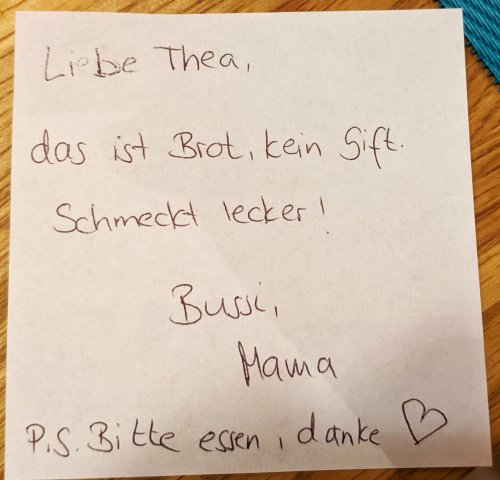 Liebe Thea,
das ist Brot, kein Gift.
Schmeckt lecker!
Bussi,
Mama
P.S. Bitte essen, danke ♡